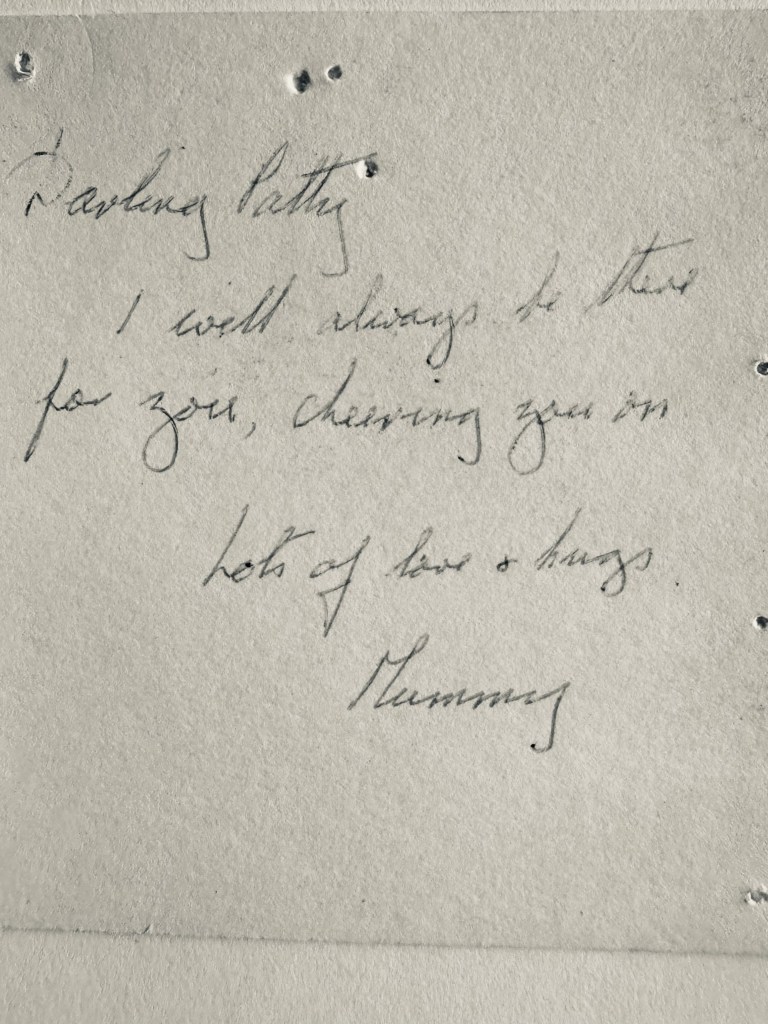 Darling Patty
I will always be there
for you, cheering you on
Lots of love & hugs
Mummy